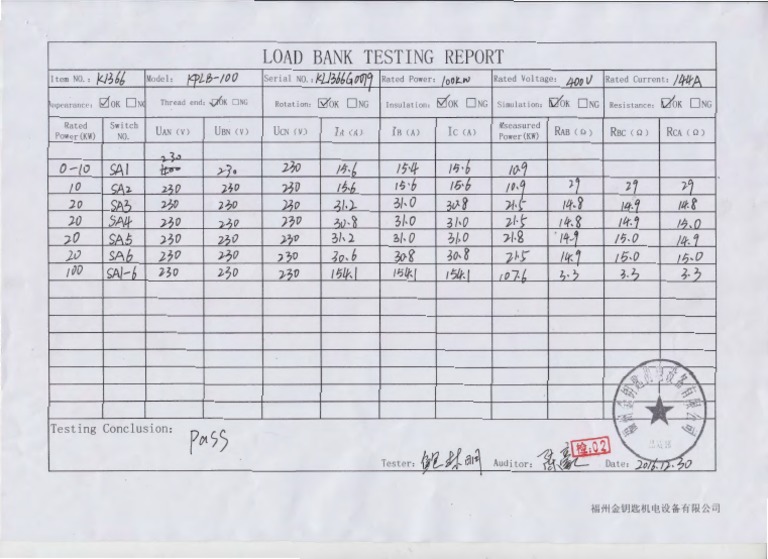 LOAD BANK TESTING REPORT
Item NO.: K1366 Model: KPLB-100 Serial NO.: KL1366G0079 Rated Power: 100kW Rated Voltage: 400V Rated Current: 144A
Appearance: ☑OK ☐NG Thread end: ☑OK ☐NG Rotation: ☑OK ☐NG Insulation: ☑OK ☐NG Simulation: ☑OK ☐NG Resistance: ☑OK ☐NG
Rated Power(KW) Switch NO. UAN (V) UBN (V) UCN (V) IA (A) IB (A) IC (A) Measured Power(KW) RAB (Ω) RBC (Ω) RCA (Ω)
230
0-10 SA1 400 230 230 15.6 15.4 15.6 10.9
10 SA2 230 230 230 15.6 15.6 15.6 10.9 29 29 29
20 SA3 230 230 230 31.2 31.0 30.8 21.5 14.8 14.9 14.8
20 SA4 230 230 230 30.8 31.0 31.0 21.5 14.8 14.9 15.0
20 SA5 230 230 230 31.2 31.0 31.0 21.8 14.9 15.0 14.9
20 SA6 230 230 230 30.6 30.8 30.8 21.5 14.9 15.0 15.0
100 SA1-6 230 230 230 154.1 154.1 154.1 107.6 3.3 3.3 3.3
Testing Conclusion: Pass
福州金钥匙机电设备有限公司
检:02
Tester: Auditor: Date: 2016.12.30
福州金钥匙机电设备有限公司